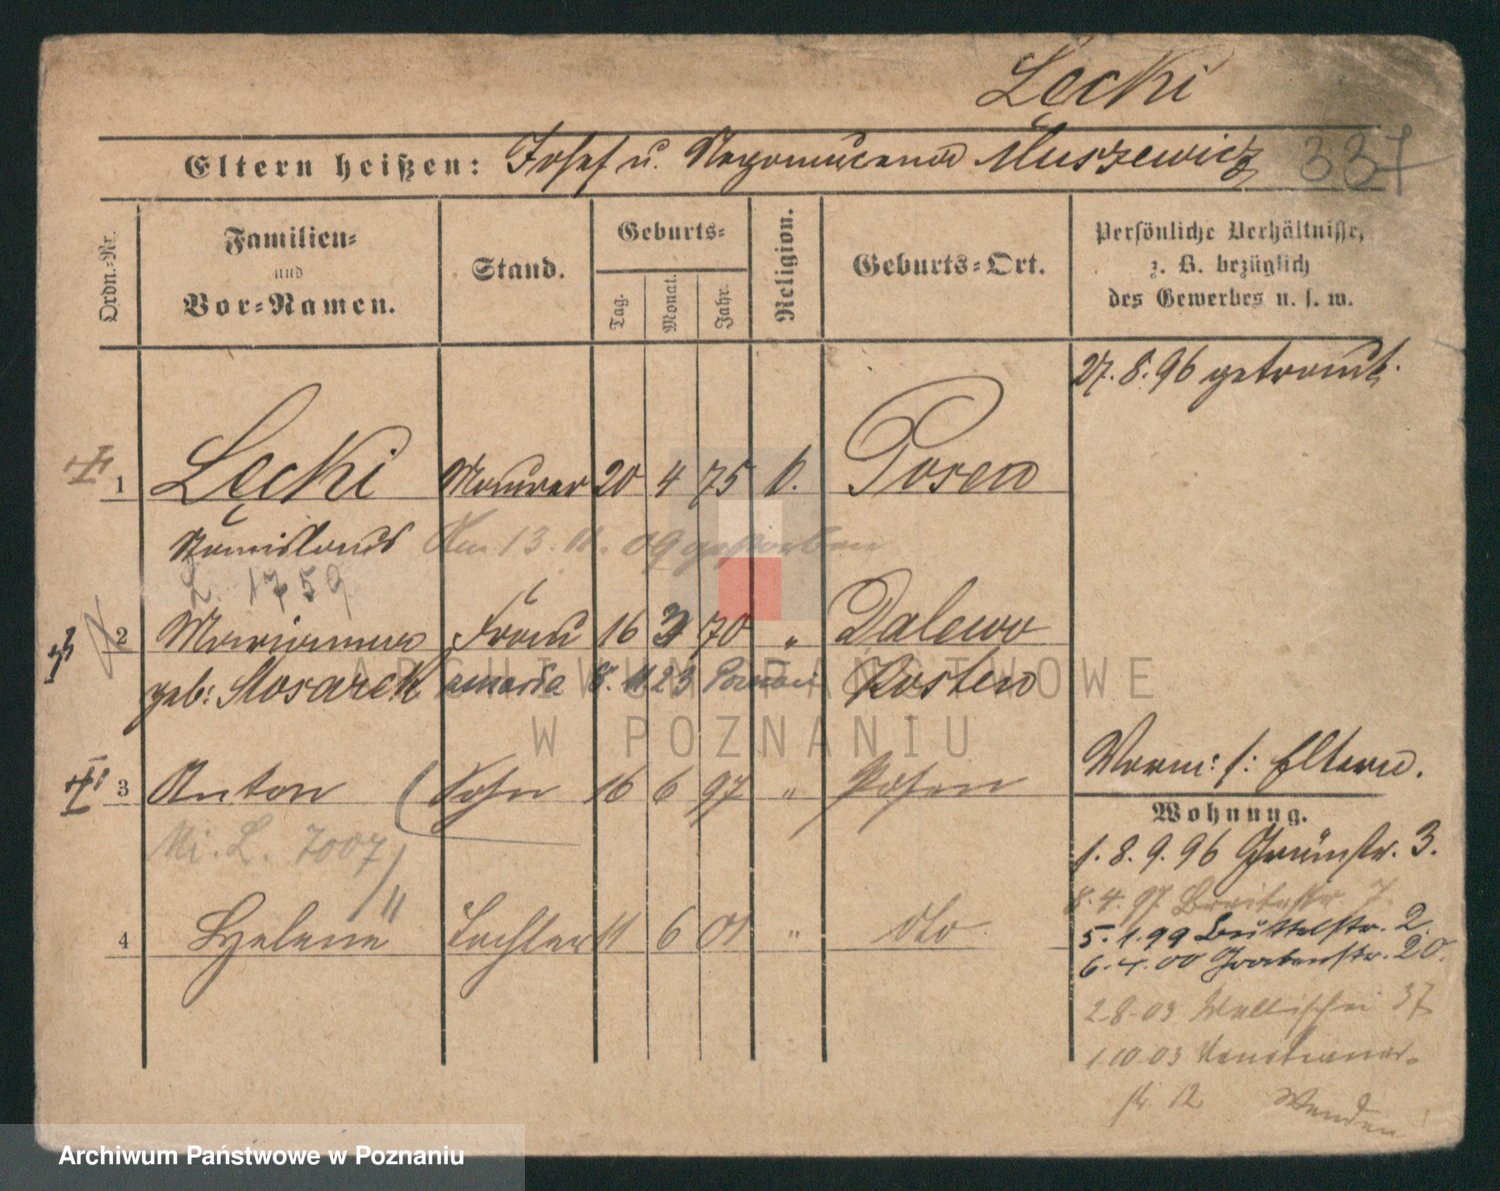 Łęcki
Eltern heißen: Josef u. Nepomucena Muszewicz 337
Ordn.-Nr.
Familien-
und
Vor-Namen.
Stand.
Geburts-
Tag.
Monat.
Jahr.
Religion.
Geburts-Ort.
Persönliche Verhältnisse,
z. B. bezüglich
des Gewerbes u. s. w.
27.8.96 getraut.
1 Łęcki Maurer 20 4 75 k. Posen
Stanislaus Am 13. 11. 09 gestorben
L. 1759
2 Marianna Frau 16 3 70 " Dalewo
geb: Slosarek zmarła 8. 11 23 Poznań Kosten
3 Anton Sohn 16 6 97 " Posen
Mi. L. 7007
4 Helene Tochter 11 6 01 " dto
Vorm: s: Eltern.
Wohnung.
1. 8. 9. 96 Grünstr. 3.
8. 4. 97 Breitestr. 7.
5. 1. 99 Büttelstr. 2.
6. 4. 00 Grabenstr. 20.
2-8-03 Wallischei 37
1.10.03 Venetianer-
str. 12 Wenden!
ARCHIWUM PAŃSTWOWE
W POZNANIU
Archiwum Państwowe w Poznaniu